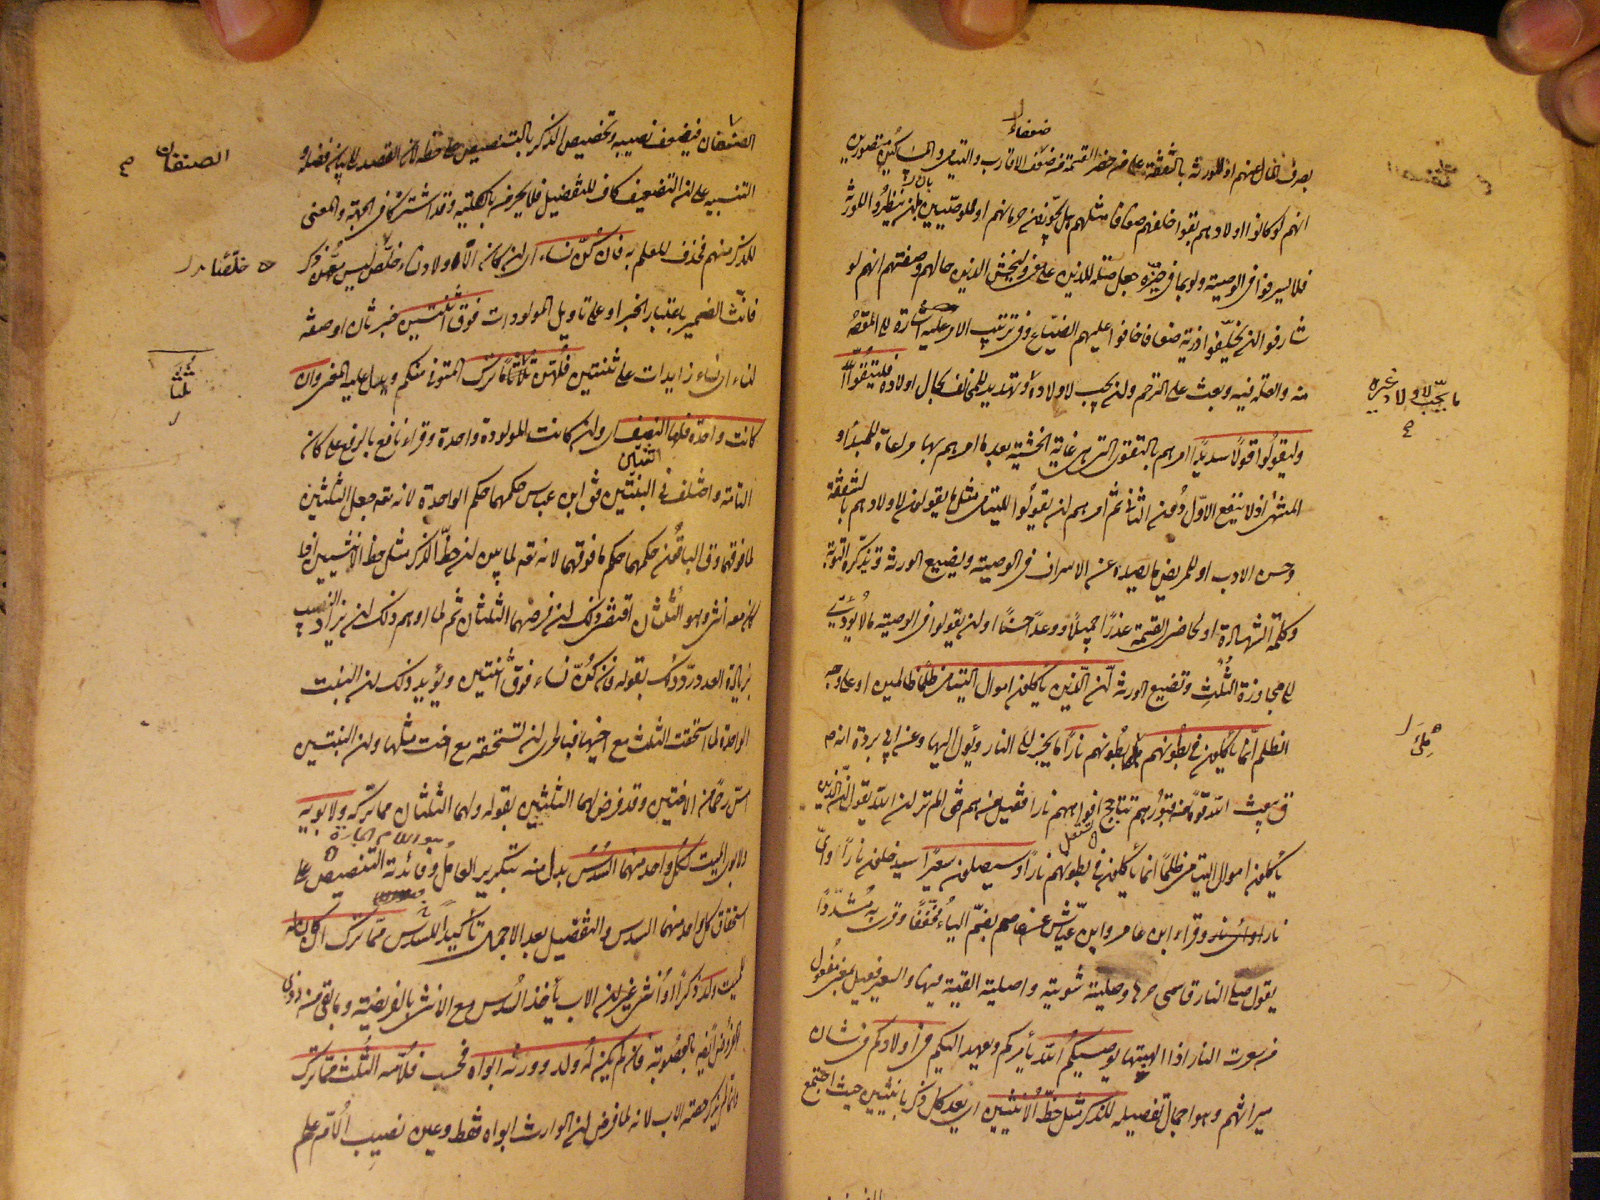 ضعفاء
بصرف المال عنهم او للورثة بالشفقة على من حضر القسمة من ضعفاء الاقارب واليتامى والمساكين متصورين
انهم لو كانوا اولادهم بقوا خلفهم ضعافا مثلهم هل يجوزون حرمانهم او للموصين بان ينظروا للورثة
فلا يسرفوا في الوصية ولو بما في حيزه جعل صلة للذين على معنى وليخش الذين حالهم وصفتهم انهم لو
شارفوا ان يخلفوا ذرية ضعافا خافوا عليهم الضياع وفي ترتيب الامر عليه اشارة الى المقصود
منه والعلة فيه وبعث على الترحم وان يحب لاولاده وتهديد للمخالف بحال اولاده فليتقوا الله
وليقولوا قولا سديدا امرهم بالتقوى التي هي غاية الخشية بعد ما امرهم بها مراعاة للمبدأ و
المنتهى اذ لا ينفع الاول دون الثاني ثم امرهم ان يقولوا لليتامى مثل ما يقولون لاولادهم بالشفقة
وحسن الادب او للمريض ما يصده عن الاسراف في الوصية وتضييع الورثة وتذكره التوبة
وكلمة الشهادة او لحاضري القسمة عذرا جميلا ووعدا حسنا او ان يقولوا في الوصية ما لا يؤدي
الى مجاوزة الثلث وتضييع الورثة ان الذين ياكلون اموال اليتامى ظلما ظالمين او على وجه
الظلم انما ياكلون في بطونهم ملء بطونهم نارا ما يجر الى النار ويؤل اليها وعن ابي بردة انه م
ق يبعث الله قوما من قبورهم تتاجج افواههم نارا فقيل من هم فق الم تر ان الله يقول ان الذين
ياكلون اموال اليتامى ظلما انما ياكلون في بطونهم نارا وسيصلون سعيرا سيدخلون نارا واي
نار وقراء ابن عامر وابن عياش عن عاصم بضم الياء مخففا وقرئ به مشددا
يقول صلى النار قاسى حرها وصليته شويته واصليته القيته فيها والسعير فعيل بمعنى مفعول
من سعرت النار اذا الهبتها يوصيكم الله يأمركم ويعهد اليكم في اولادكم في شان
ميراثهم وهو اجمال تفصيله للذكر مثل حظ الانثيين اي يعد كل ذكر بانثيين حيث اجتمع
الصنفان
ملئ
الصنفان فيضعف نصيبه وتخصيص الذكر بالتنصيص على حظه لان القصد الى بيان فضله و
التنبيه على ان التضعيف كاف للتفضيل فلا يحرمن بالكلية وقد اشتركا في الجهة والمعنى
للذكر منهم فحذف للعلم به فان كن نساء اي ان كان الاولاد نساء خلص ليس معهن ذكر
فانث الضمير باعتبار الخبر او على تاويل المولودات فوق اثنتين خبر ثان او صفة
لنساء اي نساء زايدات على ثنتين فلهن ثلثا ما ترك المتوفى منكم ويدل عليه المعنى وان
كانت واحدة فلها النصف اي وان كانت المولودة واحدة وقراء نافع بالرفع على كان
التامة واختلف في البنتين فق ابن عباس حكمهما حكم الواحدة لانه تعه جعل الثلثين
لما فوقهما وق الباقون حكمهما حكم ما فوقهما لانه تعه لما بين ان حظ الذكر مثل حظ الانثيين اذا
كان معه انثى وهو الثلثان اقتضى ذلك ان فرضهما الثلثان ثم لما اوهم ذلك ان يزاد النصيب
بزيادة العدد رد ذلك بقوله فان كن نساء فوق اثنتين ويؤيد ذلك ان البنت
الواحدة لما استحقت الثلث مع اخيها فبالحرى ان تستحقه مع اخت مثلها وان البنتين
امس رحما من الاختين وقد فرض لهما الثلثين بقوله ولهما الثلثان مما ترك ولابويه
ولابوي الميت لكل واحد منهما السدس بدل منه بتكرير العامل وفائدته التنصيص على
استحقاق كل واحد منهما السدس والتفصيل بعد الاجمال تاكيدا السدس مما ترك ان كان له
للميت ولد ذكر او انثى غير ان الاب يأخذ السدس مع الانثى بالفريضة وما بقي من ذوى
الفروض ايضا بالعصوبة فان لم يكن له ولد وورثه ابواه فحسب فلامه الثلث مما ترك
وانما لم يذكر حصة الاب لانه لما فرض ان الوارث ابواه فقط وعين نصيب الام علم